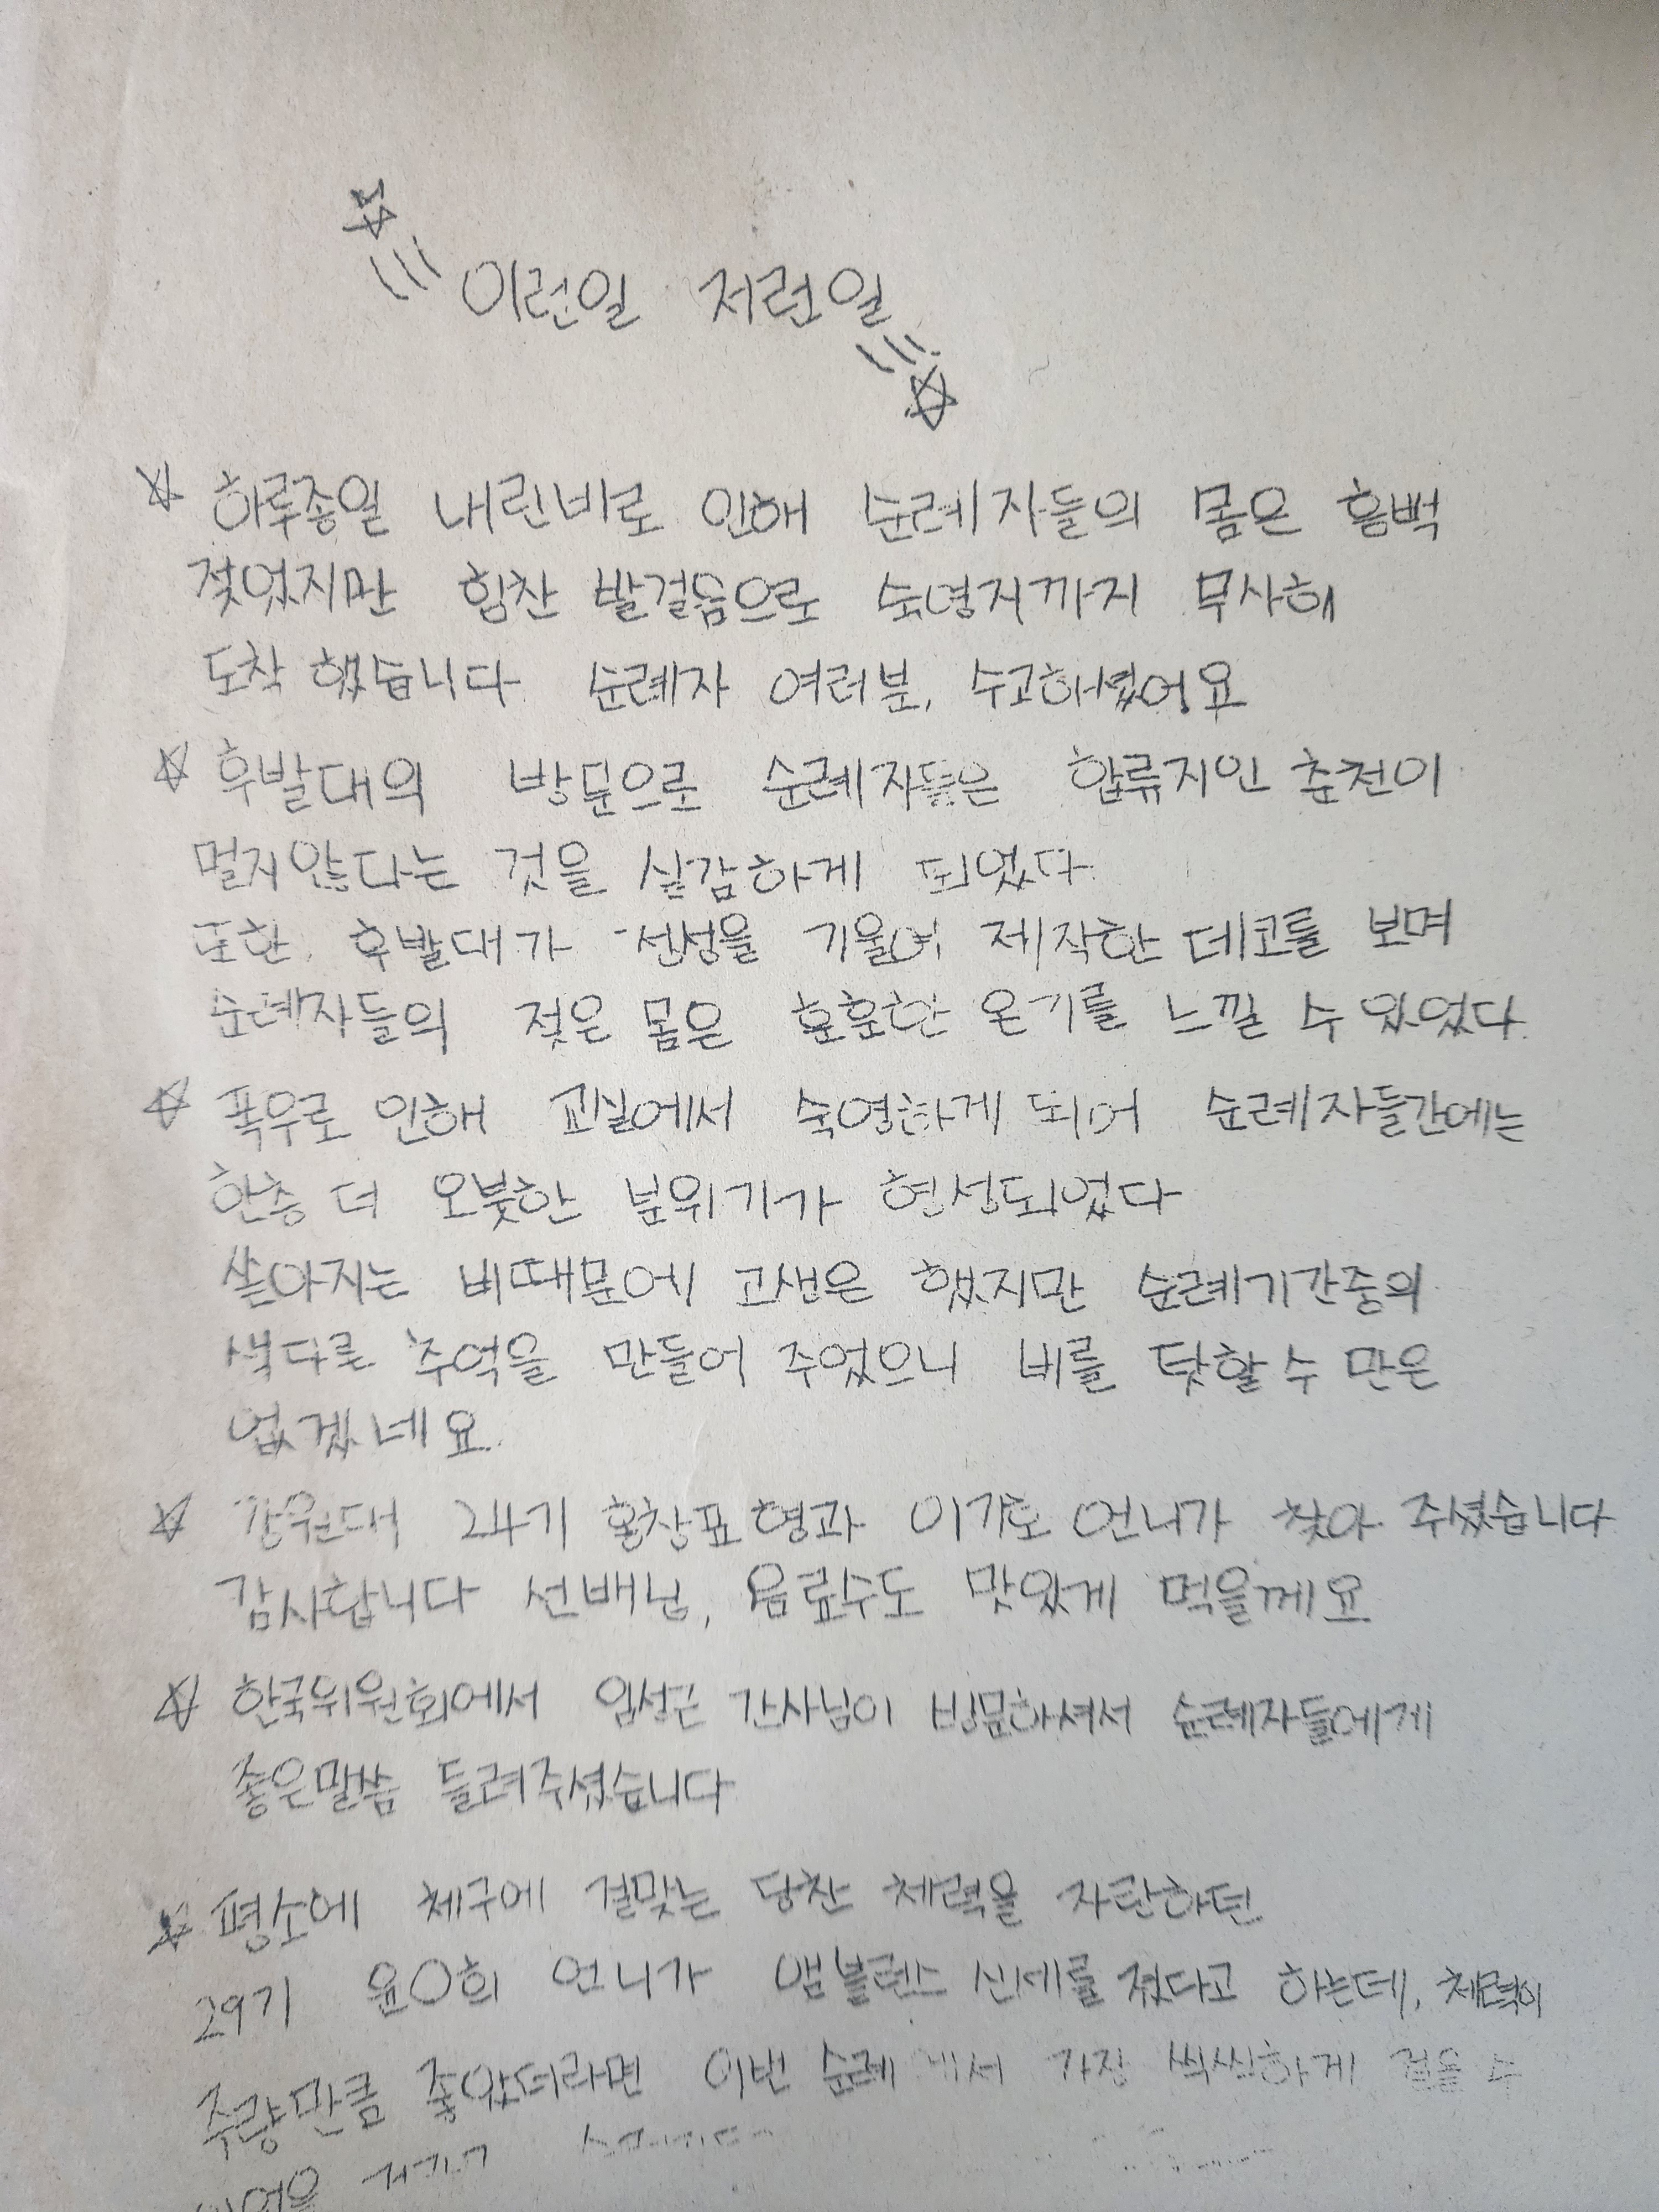 이런일 저런일
하루종일 내린비로 인해 순례자들의 몸은 흠뻑
젖었지만 힘찬 발걸음으로 숙영지까지 무사히
도착 했습니다 순례자 여러분, 수고하셨어요
후발대의 방문으로 순례자들은 합류지인 춘천이
멀지않다는 것을 실감하게 되었다
또한, 후발대가 정성을 기울여 제작한 데코를 보며
순례자들의 젖은 몸은 훈훈한 온기를 느낄 수 있었다.
폭우로 인해 교실에서 숙영하게 되어 순례자들간에는
한층 더 오붓한 분위기가 형성되었다
쏟아지는 비때문에 고생은 했지만 순례기간중의
색다른 추억을 만들어 주었으니 비를 탓할 수 만은
없겠네요.
강원대 24기 홍창표 형과 언니가 찾아 주셨습니다
감사합니다 선배님, 음료수도 맛있게 먹을께요
한국위원회에서 임성근 간사님이 방문하셔서 순례자들에게
좋은말씀 들려주셨습니다
평소에 체구에 걸맞는 당찬 체력을 자랑하던
29기 윤○희 언니가 앰블런스 신세를 졌다고 하는데, 체력이
주량만큼 좋았더라면 이번 순례에서 가장 씩씩하게 걸을 수